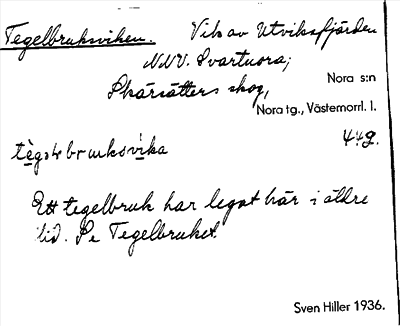 Tegelbruksviken. Vik av Utviksfjärden
NNV. Svartnora;
Skärsätters skog,
Nora s:n
Nora tg., Västernorrl. l.
449.
Ett tegelbruk har legat här i äldre
tid. Se Tegelbruket
Sven Hiller 1936.